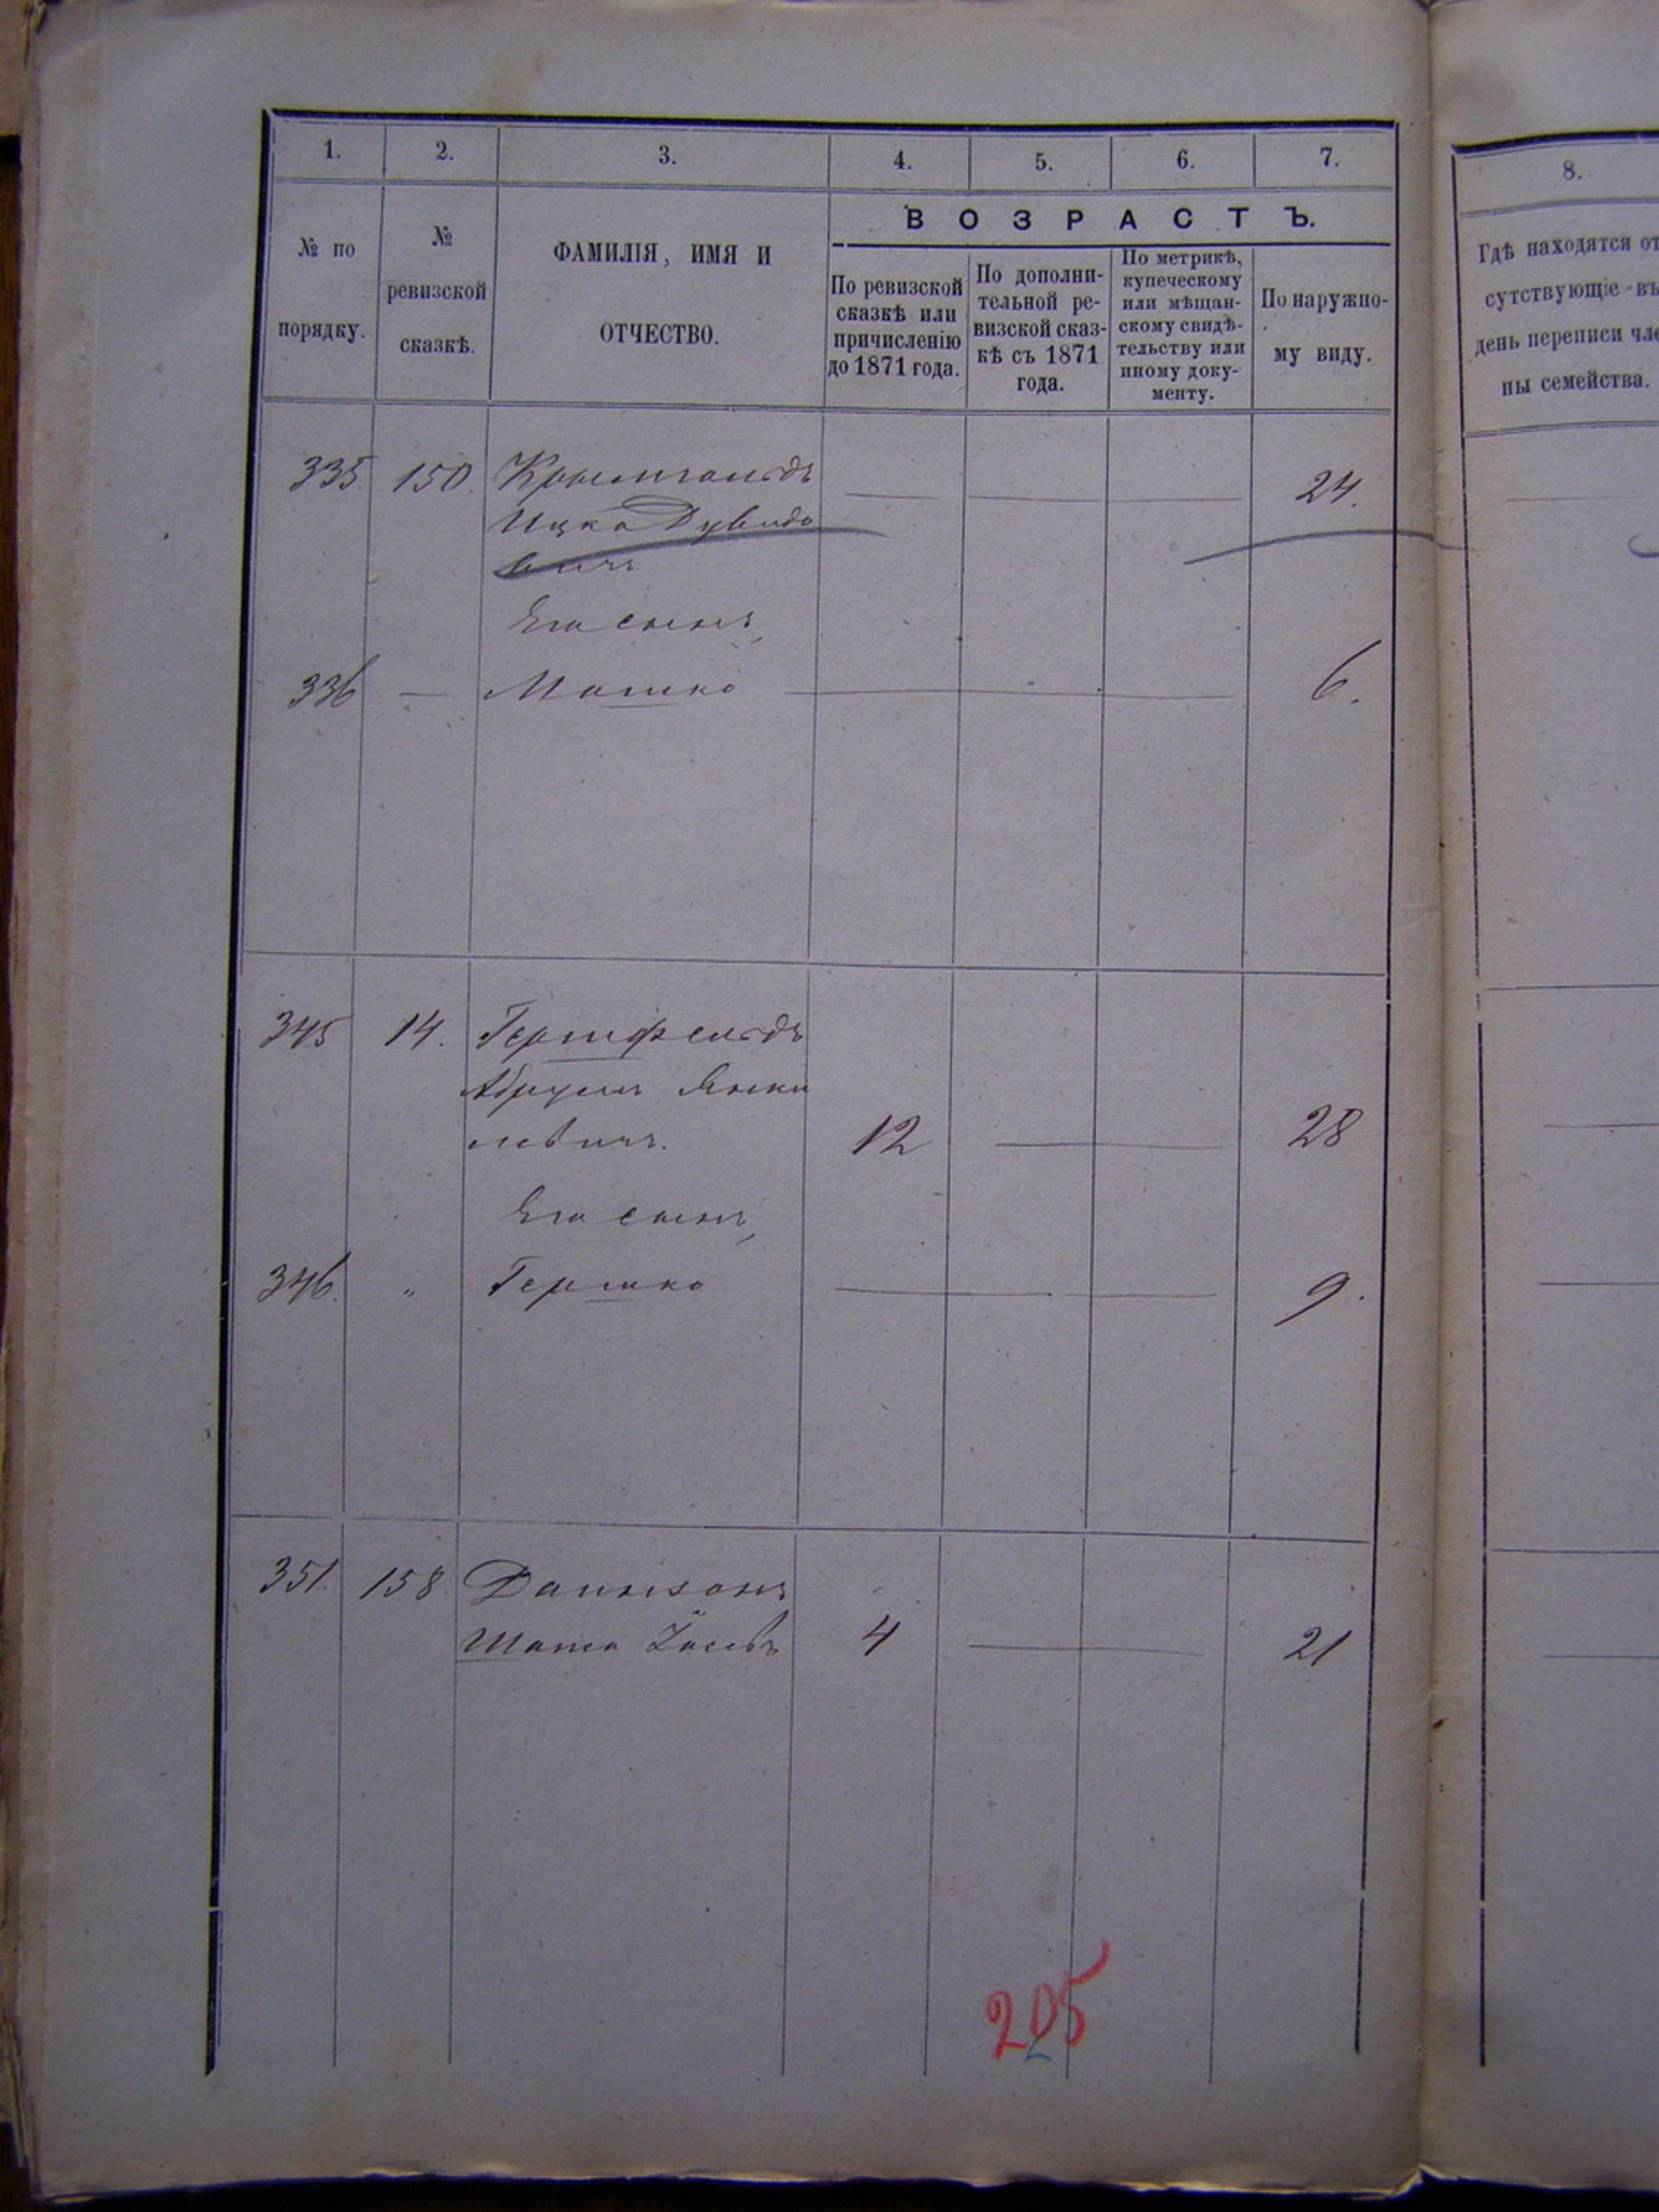 1. 2. 3. 4. 5. 6. 7.
№ по порядку.
№ ревизской сказкѣ.
ФАМИЛІЯ, ИМЯ И
ОТЧЕСТВО.
ВОЗРАСТЪ.
По ревизской
сказкѣ или
причисленію
до 1871 года.
По дополни-
тельной ре-
визской сказ-
кѣ съ 1871
года.
По метрикѣ,
купеческому
или мѣщан-
скому свидѣ-
тельству или
иному доку-
менту.
По наружно-
му виду.
335. 150. 24.
Ицко Дувидо
вичъ
Его сынъ,
336 — Мошко — — — 6.
345 14. Гершфельдъ
Абрумъ Янки
левичъ. 12 — — 28
Его сынъ,
346. " Гершко — — — 9.
351. 158
4 — — 21
205
8.
Гдѣ находятся от
сутствующіе въ
день переписи чле
ны семейства.